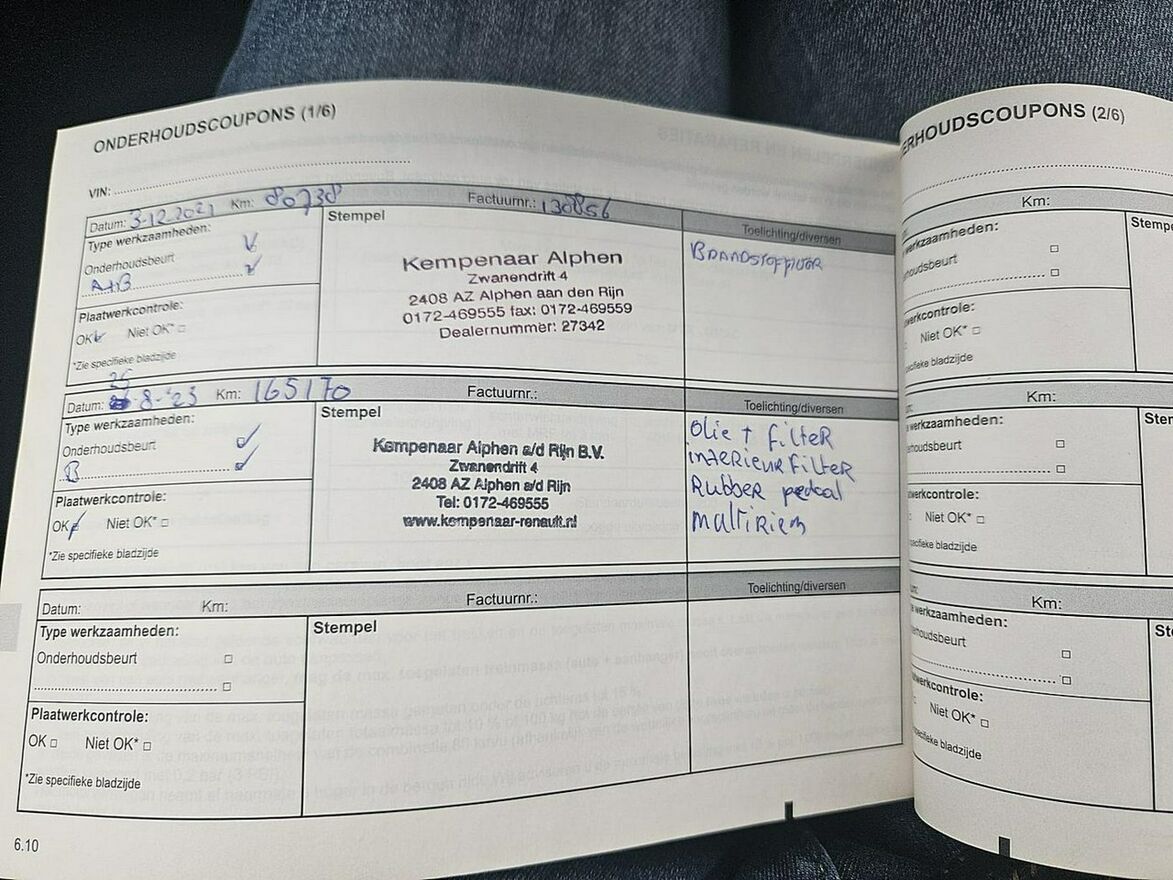 ONDERHOUDSCOUPONS (1/6)
VIN:
Datum: 3-12-2021 Km: 80738 Factuurnr.: 130856
Type werkzaamheden:
Onderhoudsbeurt
A+B
Plaatwerkcontrole:
OK Niet OK*
*Zie specifieke bladzijde
Stempel
Kempenaar Alphen
Zwanendrift 4
2408 AZ Alphen aan den Rijn
0172-469555 fax: 0172-469559
Dealernummer: 27342
Toelichting/diversen
BRANDSTOFFILTER
25
Datum: 8-'23 Km: 165170 Factuurnr.:
Type werkzaamheden:
Onderhoudsbeurt
B
Plaatwerkcontrole:
OK Niet OK*
*Zie specifieke bladzijde
Stempel
Kempenaar Alphen a/d Rijn B.V.
Zwanendrift 4
2408 AZ Alphen a/d Rijn
Tel: 0172-469555
www.kempenaar-renault.nl
Toelichting/diversen
Olie + FilteR
inTERIEUR FilteR
RubbeR pedaal
multiRiem
Datum: Km: Factuurnr.:
Type werkzaamheden:
Onderhoudsbeurt
Plaatwerkcontrole:
OK Niet OK*
*Zie specifieke bladzijde
Stempel
Toelichting/diversen
6.10
ERHOUDSCOUPONS (2/6)
Km:
werkzaamheden:
houdsbeurt
werkcontrole:
Niet OK*
specifieke bladzijde
Stempe
Km:
werkzaamheden:
erhoudsbeurt
atwerkcontrole:
Niet OK*
specifieke bladzijde
Stem
Km:
werkzaamheden:
erhoudsbeurt
twerkcontrole:
Niet OK*
specifieke bladzijde
St